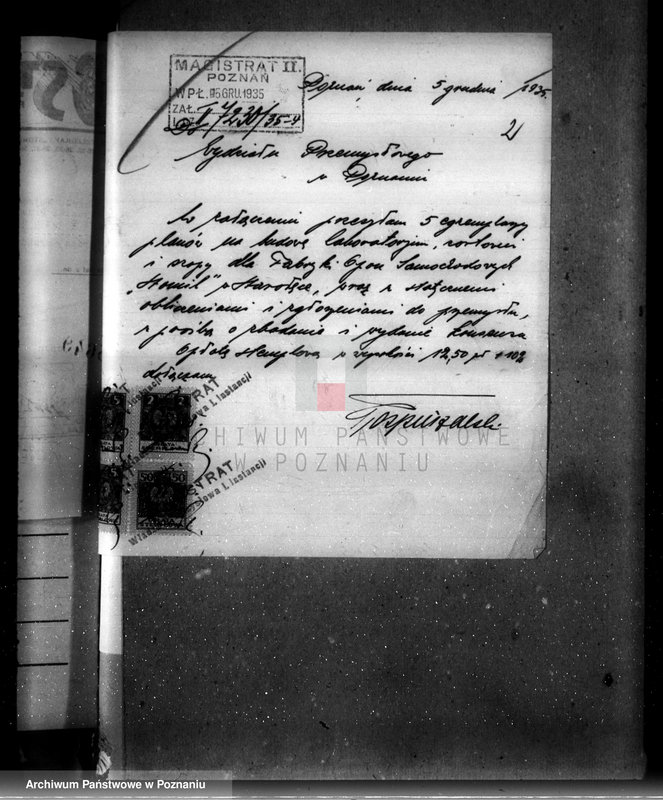 MAGISTRAT II.
POZNAŃ
WPŁ. 05.GRU.1935
ZAŁ.
L.dz. II 7230/35-4
Poznań, dnia 5 grudnia 1935.
2
Wydziału Przemysłowego
w Poznaniu
W załączeniu przesyłam 5 egzemplarzy
planów na budowę laboratorjum,
i szopy dla Fabryki Opon Samochodowych
"Stomil" w Starołęce, wraz z
obliczeniami i zgłoszeniami do przemysłu,
z prośbą o zbadanie i wydanie konsensu
Opłatę stemplową w wysokości 12,50 zł + 10%
dołączam
MAGISTRAT
Władza Przemysłowa I. Instancji
MAGISTRAT
Władza Przemysłowa I. Instancji
2 2
50 50
ARCHIWUM PAŃSTWOWE
W POZNANIU
Archiwum Państwowe w Poznaniu